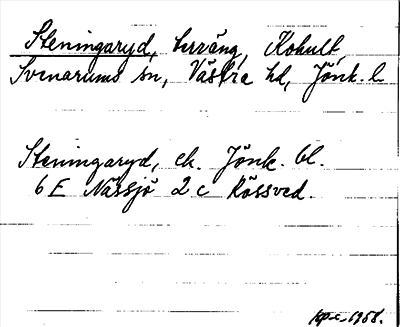 Steningaryd, terräng, Kohult,
Svenarums sn, Västra hd, Jönk. l.
Steningaryd, ek. Jönk. bl.
6 E Nässjö 2 c Rössved.
1958.